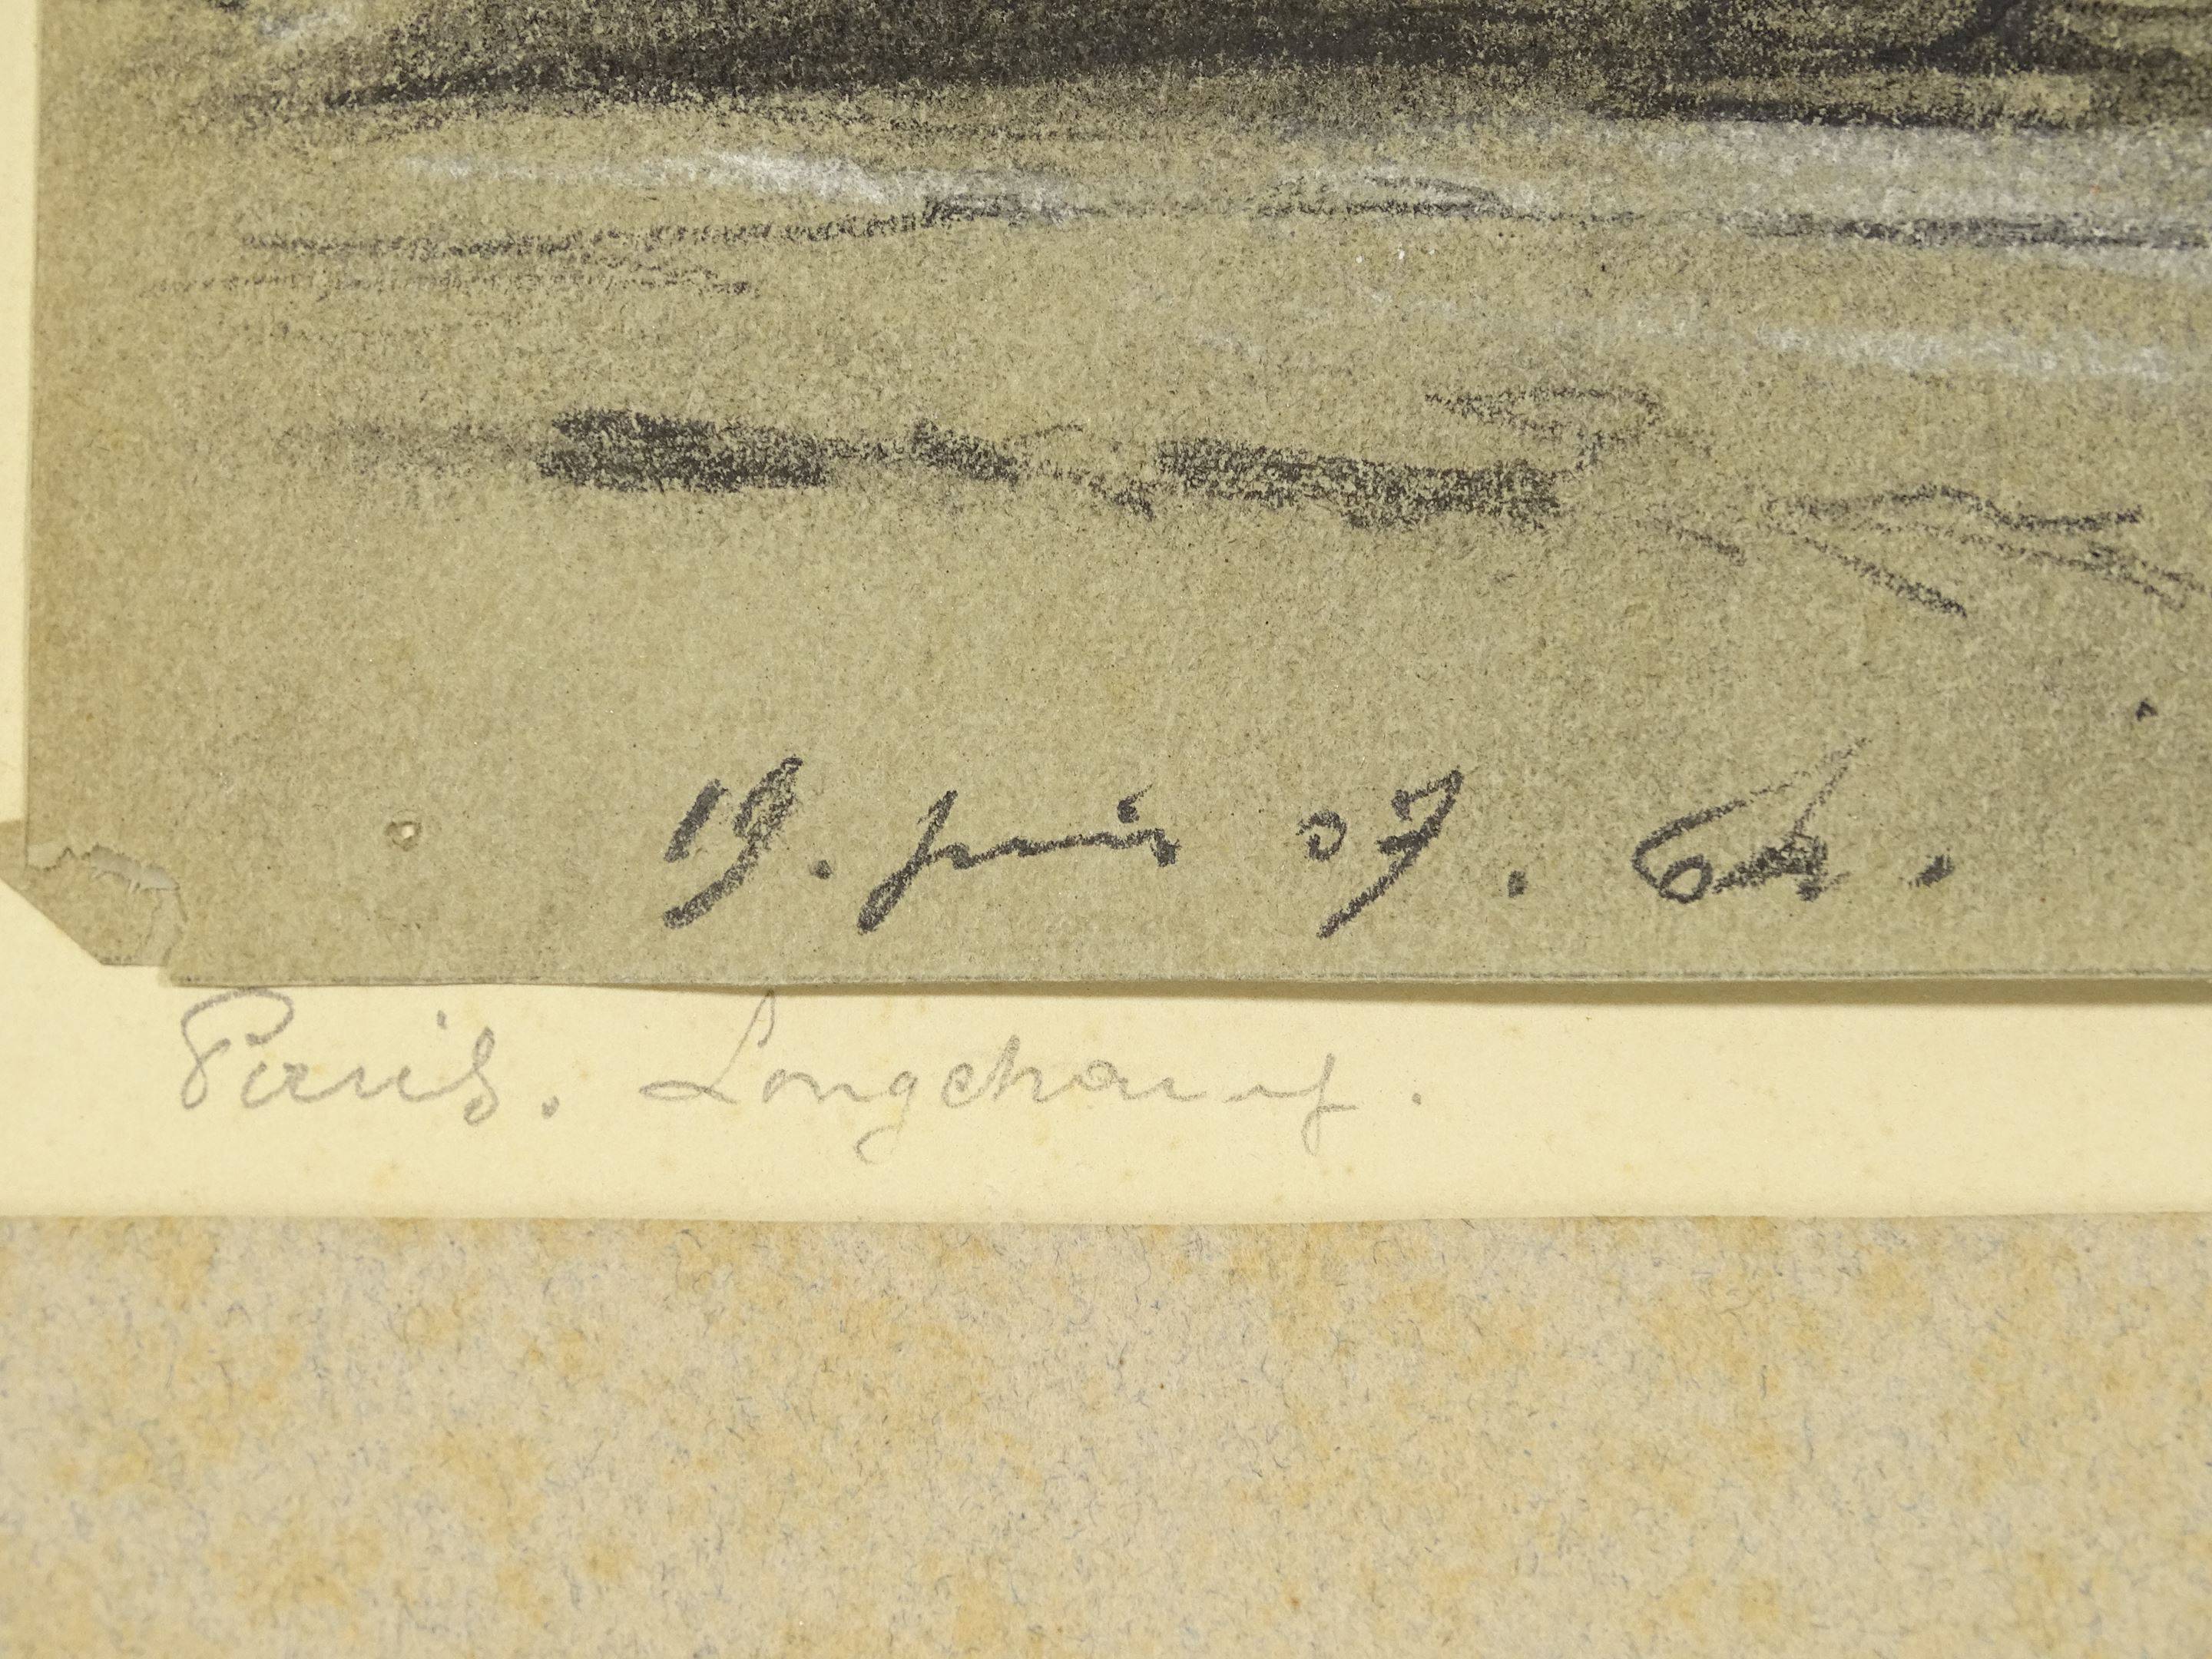 19. juin 07.
Paris. Longchamp.